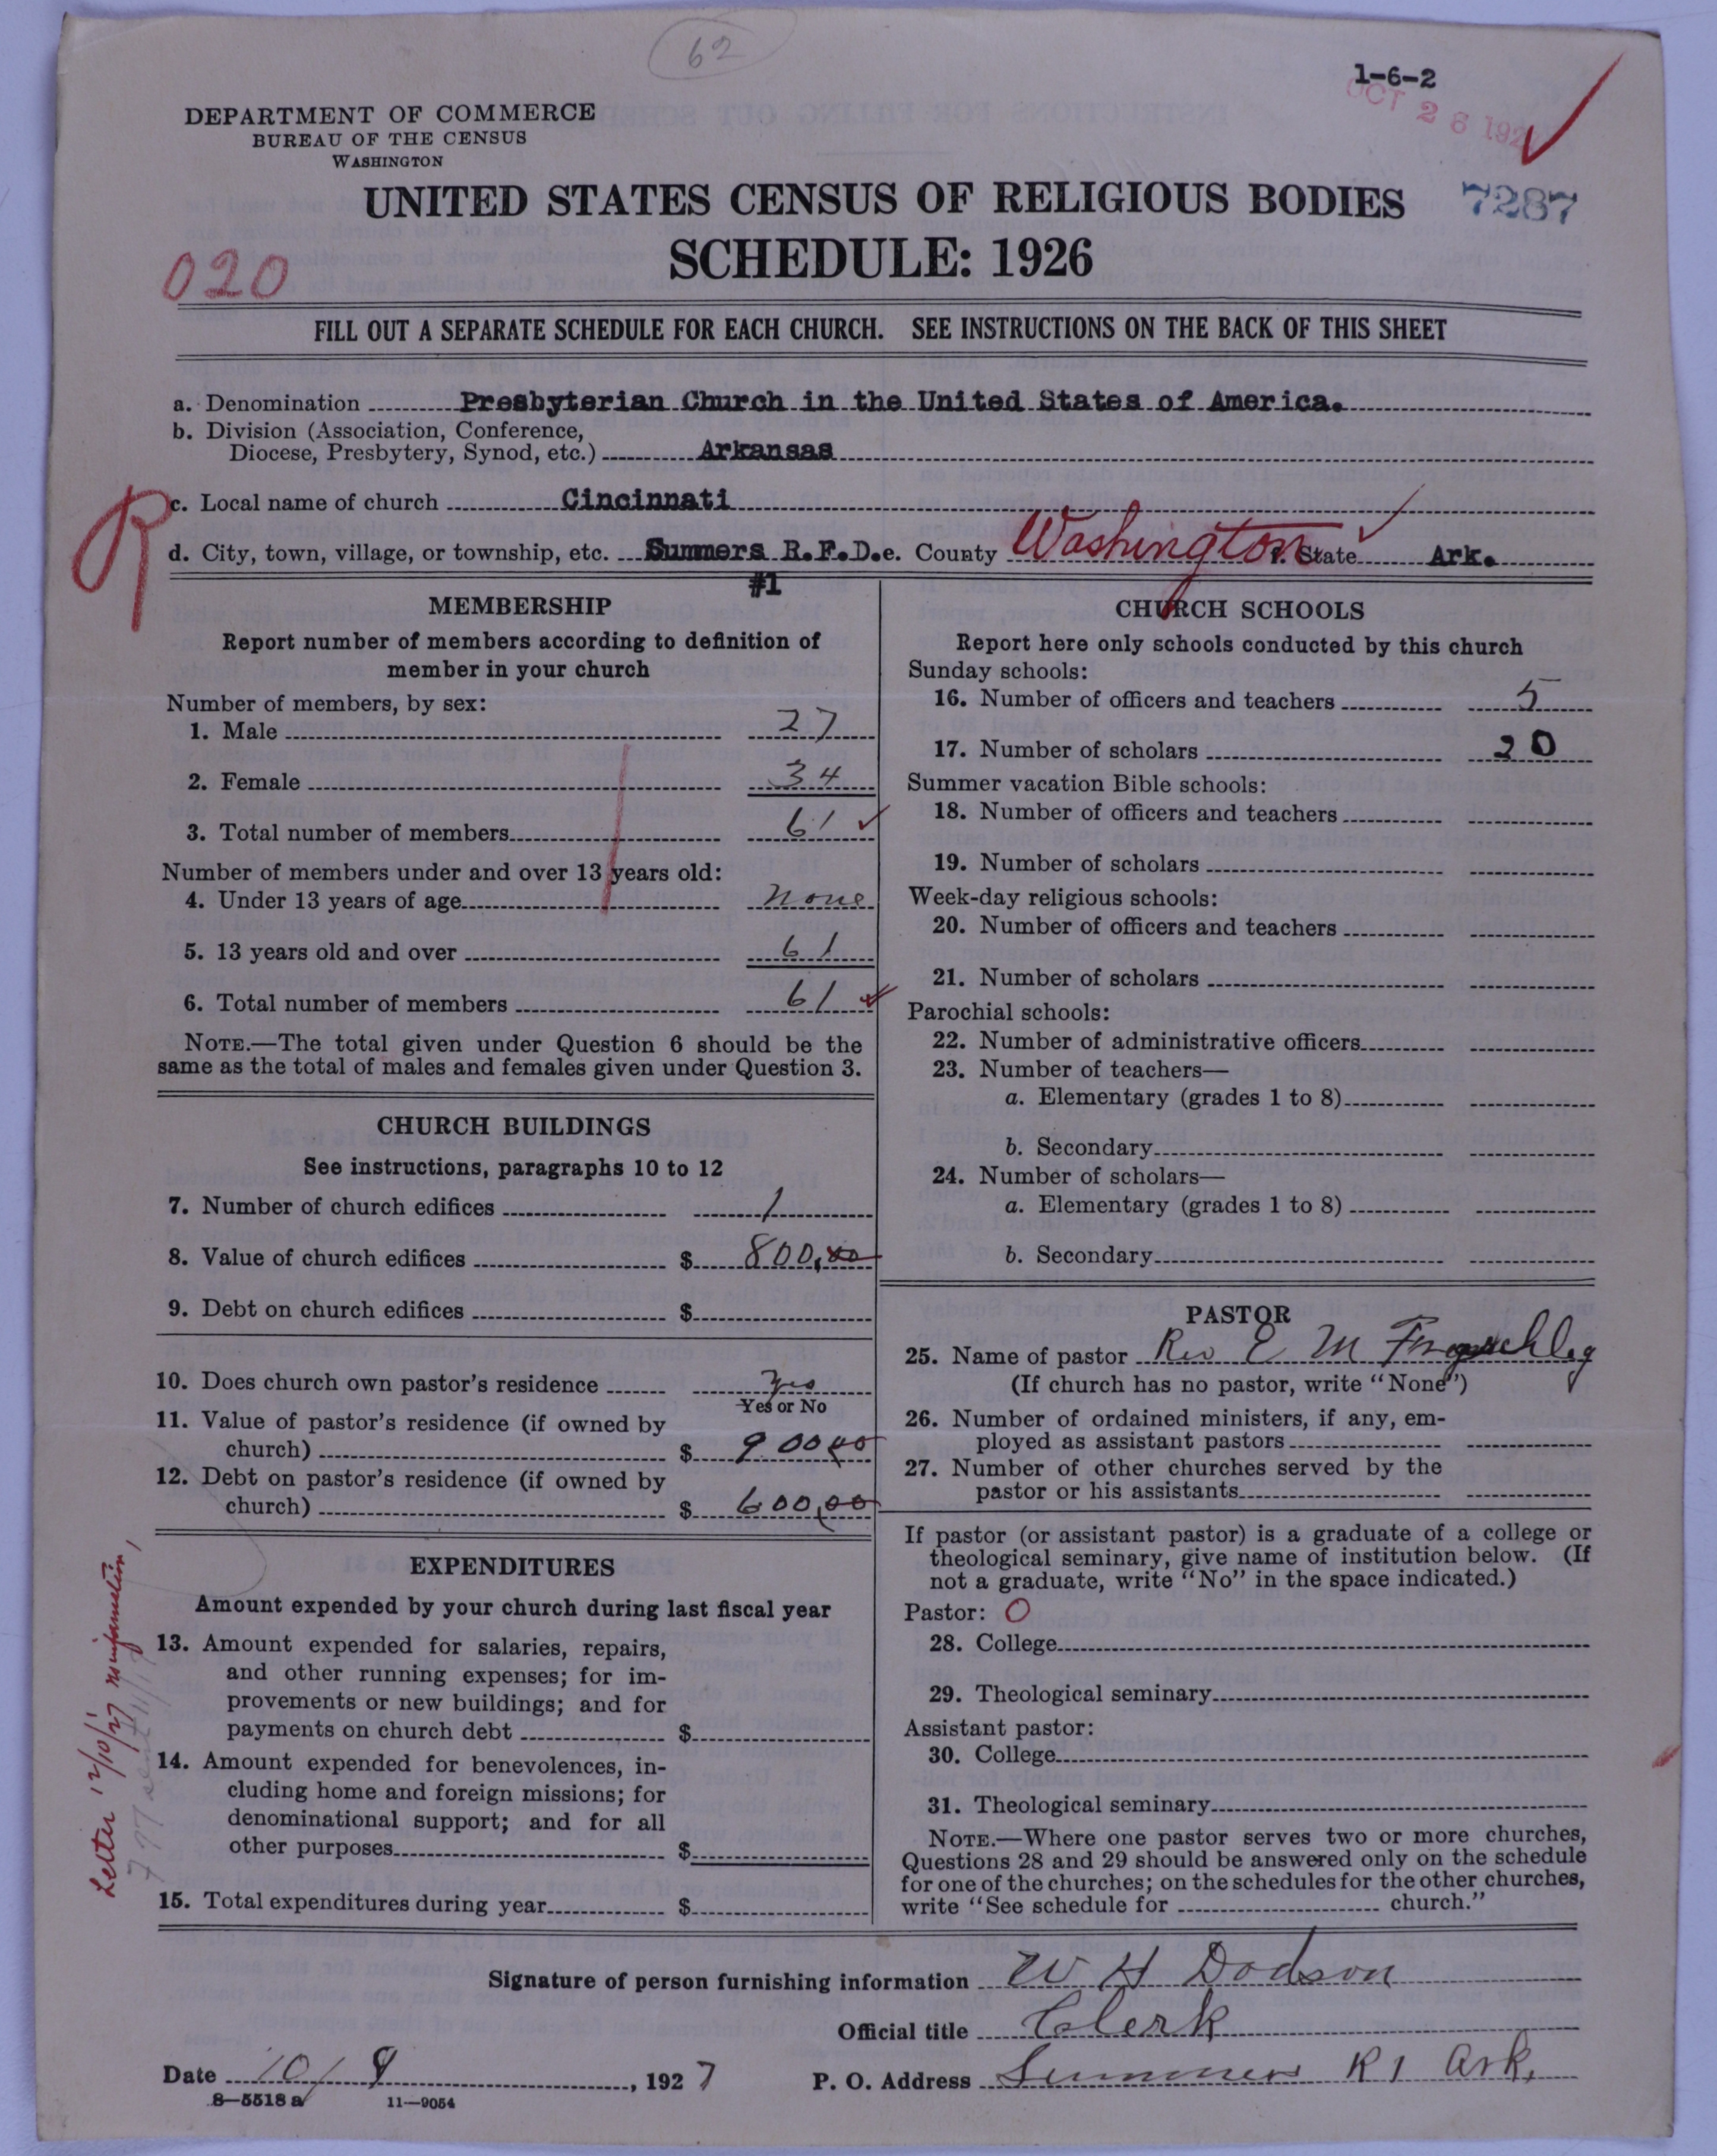 62
1-6-2
OCT 28 192
DEPARTMENT OF COMMERCE
BUREAU OF THE CENSUS
WASHINGTON
UNITED STATES CENSUS OF RELIGIOUS BODIES
7287
SCHEDULE: 1926
020
FILL OUT A SEPARATE SCHEDULE FOR EACH CHURCH. SEE INSTRUCTIONS ON THE BACK OF THIS SHEET
a. Denomination Presbyterian Church in the United States of America.
b. Division (Association, Conference,
Diocese, Presbytery, Synod, etc.) Arkansas
R
c. Local name of church Cincinnati
d. City, town, village, or township, etc. Summers R.F.D. e. County Washington f. State Ark.
#1
MEMBERSHIP
Report number of members according to definition of
member in your church
Number of members, by sex:
1. Male 27
2. Female 34
3. Total number of members 61
Number of members under and over 13 years old:
4. Under 13 years of age none
5. 13 years old and over 61
6. Total number of members 61
NOTE.—The total given under Question 6 should be the
same as the total of males and females given under Question 3.
CHURCH BUILDINGS
See instructions, paragraphs 10 to 12
7. Number of church edifices 1
8. Value of church edifices $ 800.00
9. Debt on church edifices $
10. Does church own pastor's residence Yes
Yes or No
11. Value of pastor's residence (if owned by
church) $ 900 00
12. Debt on pastor's residence (if owned by
church) $ 600.00
EXPENDITURES
Amount expended by your church during last fiscal year
13. Amount expended for salaries, repairs,
and other running expenses; for im-
provements or new buildings; and for
payments on church debt $
14. Amount expended for benevolences, in-
cluding home and foreign missions; for
denominational support; and for all
other purposes $
15. Total expenditures during year $
Letter 12/10/27
CHURCH SCHOOLS
Report here only schools conducted by this church
Sunday schools:
16. Number of officers and teachers 5
17. Number of scholars 20
Summer vacation Bible schools:
18. Number of officers and teachers
19. Number of scholars
Week-day religious schools:
20. Number of officers and teachers
21. Number of scholars
Parochial schools:
22. Number of administrative officers
23. Number of teachers—
a. Elementary (grades 1 to 8)
b. Secondary
24. Number of scholars—
a. Elementary (grades 1 to 8)
b. Secondary
PASTOR
25. Name of pastor Rev E M
(If church has no pastor, write "None")
26. Number of ordained ministers, if any, em-
ployed as assistant pastors
27. Number of other churches served by the
pastor or his assistants
If pastor (or assistant pastor) is a graduate of a college or
theological seminary, give name of institution below. (If
not a graduate, write "No" in the space indicated.)
Pastor: O
28. College
29. Theological seminary
Assistant pastor:
30. College
31. Theological seminary
NOTE.—Where one pastor serves two or more churches,
Questions 28 and 29 should be answered only on the schedule
for one of the churches; on the schedules for the other churches,
write "See schedule for church."
Signature of person furnishing information W H Dodson
Official title Clerk
Date 10/9, 1927 P. O. Address Summers R 1 Ark.
8—5518 a 11—9054